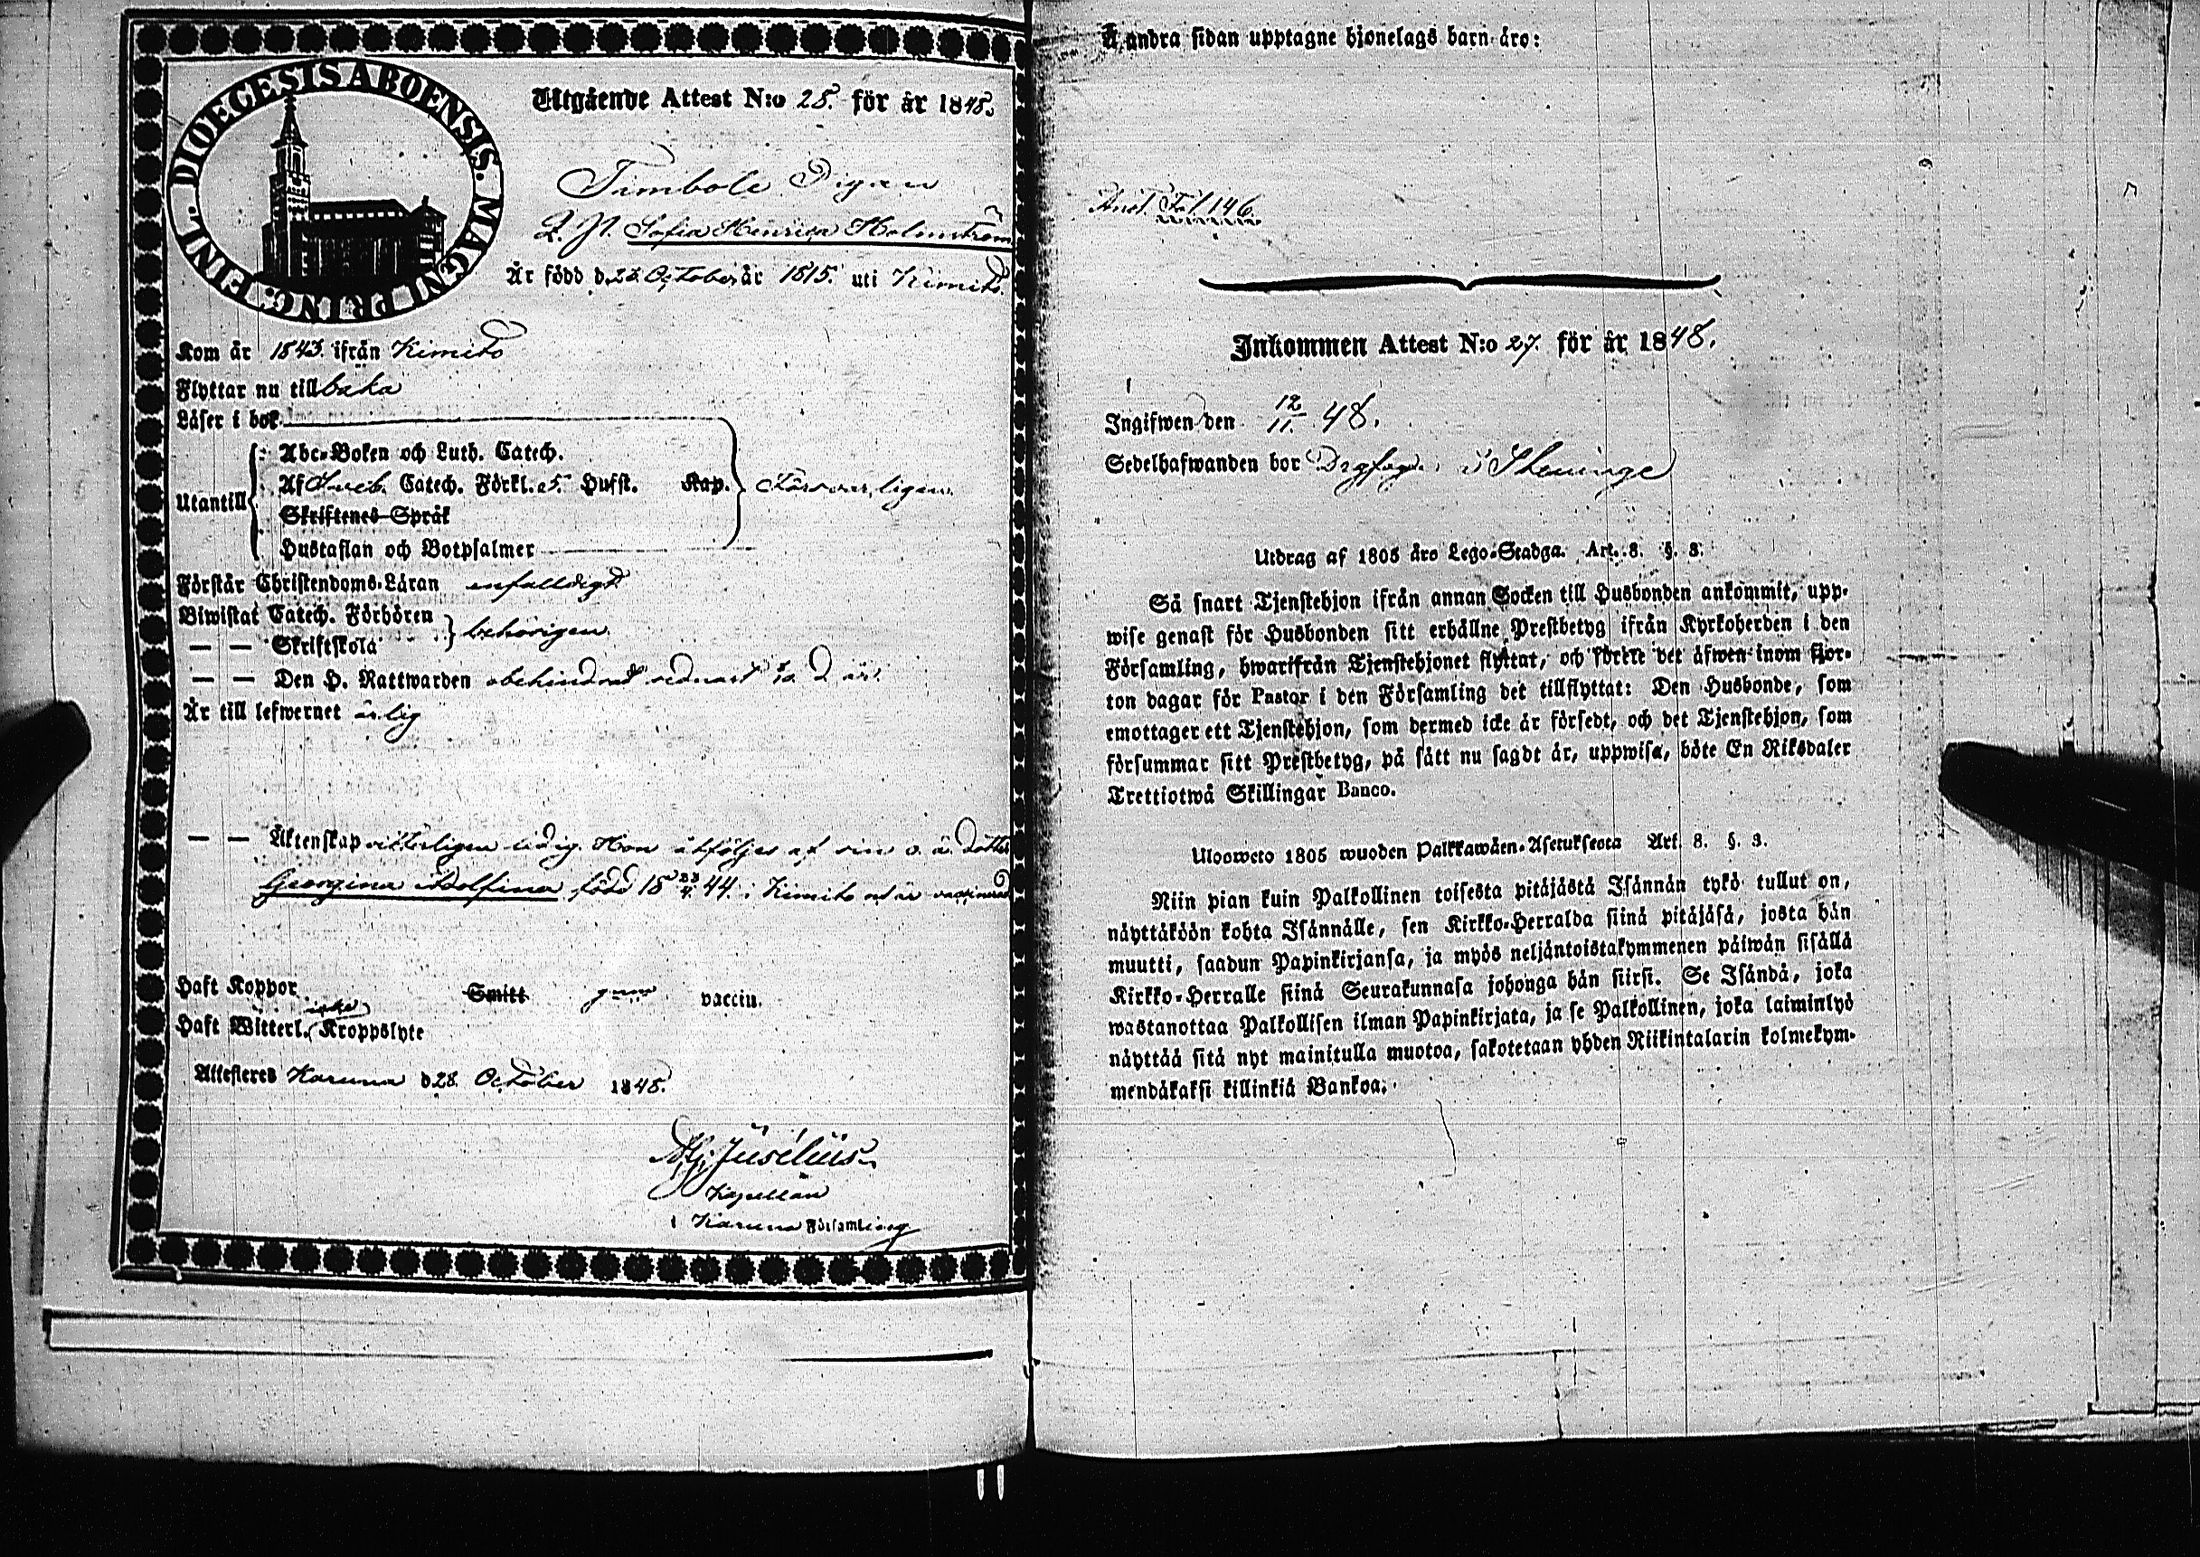 DIOECESIS ABOENSIS. MAGNI PRINC. FINL.
Utgående Attest N:o 28. för år 1848.
Timbole Pigan
Q. P. Sofia Henrica Holmström
Är född d. 28 October år 1815. uti Kimito.
Kom år 1843. ifrån Kimito
Flyttar nu tillbaka
Läser i bok
Abc-Boken och Luth. Catech.
Utantill Af Sveb. Catech. Förkl. Husft. Kap. försvarligen.
Skriftenes Språk
Hustaflan och Botpsalmer
Förstår Christendoms-Läran enfalldigt
Biwistat Catech. Förhören
— — Skriftskola behörigen
— — Den H. Nattwarden obehindrad sednast d. år.
Är till lefwernet ärlig
— — Äktenskap vitterligen ledig. Hon åtföljes af sin o. ä. dotter
Georgina Adolfina, född 18 23/4 44. i Kimito och är vaccinerad
Haft Koppor Smitt gm vaccin.
Haft Witterl. icke Kroppslyte
Attesteres Karuna d 28. October 1848.
Juselius
Kapellan
i Karuna Församling
Å andra sidan upptagne hjonelags barn äro:
Anst. Fol 146
Inkommen Attest N:o 27. för år 1848.
Ingifwen den 12/11. 48.
Sedelhafwanden bor i Skeninge
Utdrag af 1805 åro Lego-Stadga. Art. 8. §. 3.
Så snart Tjenstehjon ifrån annan Socken till Husbonden ankommit, upp-
wise genast för Husbonden sitt erhållne Prestbetyg ifrån Kyrkoherden i den
Församling, hwarifrån Tjenstehjonet flyttat, och förete det äfwen inom fjor-
ton dagar för Pastor i den Församling det tillflyttat: Den Husbonde, som
emottager ett Tjenstehjon, som dermed icke är försedt, och det Tjenstehjon, som
försummar sitt Prestbetyg, på sätt nu sagdt är, uppwisa, böte En Riksdaler
Trettiotwå Skillingar Banco.
Uloosweto 1805 wuoden Palkkawäen-Asetuksesta Art. 8. §. 3.
Niin pian kuin Palkollinen toisesta pitäjästä Isännän tykö tullut on,
näyttäköön kohta Isännälle, sen Kirkko-Herralda siinä pitäjäsä, josta hän
muutti, saadun Papinkirjansa, ja myös neljäntoistakymmenen päiwän sisällä
Kirkko-Herralle siinä Seurakunnasa johonga hän siirsi. Se Isändä, joka
wastanottaa Palkollisen ilman Papinkirjata, ja se Palkollinen, joka laiminlyö
näyttää sitä nyt mainitulla muotoa, sakotetaan yhden Riikintalarin kolmekym-
mendäkaksi killinkiä Bankoa.